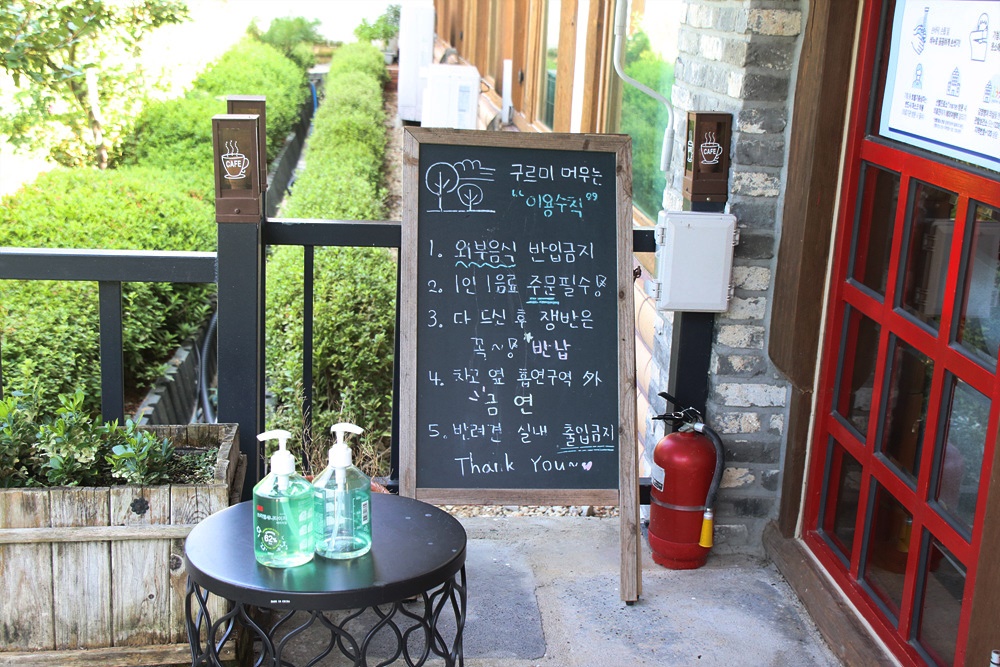 CAFE
CAFE
구르미 머무는
"이용수칙"
1. 외부음식 반입금지
2. 1인 1음료 주문필수
3. 다 드신 후 쟁반은
꼭~ 반납
4. 차고 옆 흡연구역 外
금연
5. 반려견 실내 출입금지
Thank You~
62%